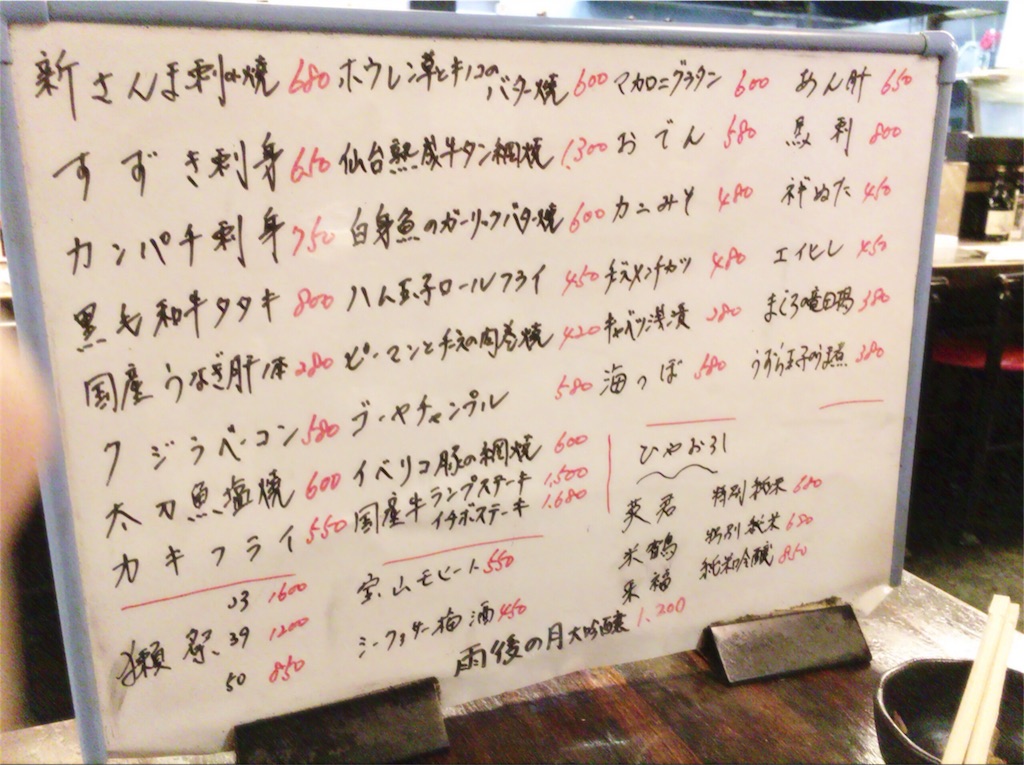 新さんま刺or焼 680
すずき刺身 650
カンパチ刺身 750
黒毛和牛タタキ 800
国産うなぎ肝1本 280
クジラベーコン 580
太刀魚塩焼 600
カキフライ 550
ホウレン草とキノコのバター焼 600
仙台熟成牛タン網焼 1,300
白身魚のガーリックバター焼 600
ハム玉子ロールフライ 450
ピーマンとチーズの肉巻焼 420
ゴーヤチャンプル 580
イベリコ豚の網焼 600
国産牛ランプステーキ 1,500
イチボステーキ 1,680
マカロニグラタン 600
おでん 580
カニみそ 480
チーズメンチカツ 480
キャベツ浅漬 280
海つぼ 580
あん肝 650
馬刺 800
ネギぬた 450
エイヒレ 450
まぐろの竜田揚 380
うずら玉子のうま煮 380
獺祭 23 1600
39 1200
50 850
宝山モヒート 550
シークヮサー梅酒 450
ひやおろし
英君 特別純米 680
米鶴 特別純米 680
来福 純米吟醸 850
雨後の月 大吟醸 1,200